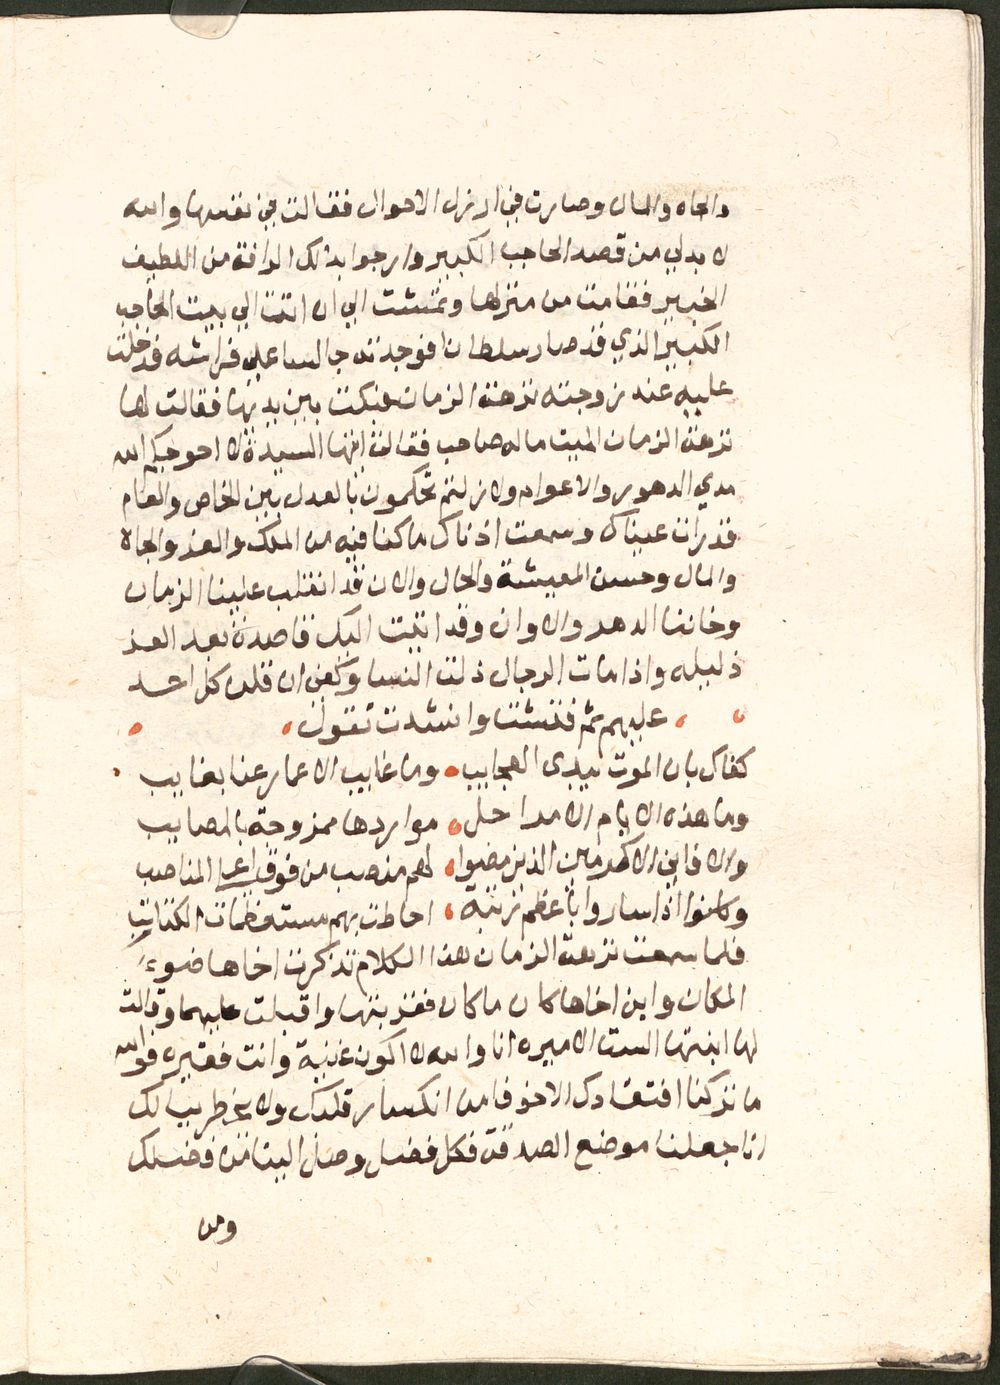 والجاه والمال وصارت في ارذل الاحوال فقالت في نفسها والله
لا بد لي من قصد الحاجب الكبير وارجوا بذلك الرافة من اللطيف
الخبير فقامت من منزلها وتمشت الي ان اتت الي بيت الحاجب
الكبير الذي قد صار سلطانا فوجدته جالسا علي فراشه فدخلت
عليه عند زوجته نزهة الزمان فبكت بين يديها فقالت لها
نزهة الزمان الميت ما له صاحب فقالت ايتها السيدة لا احوجكم الله
مدي الدهور والاعوام ولا زلتم تحكمون بالعدل بين الخاص والعام
قد رات عيناك وسمعت اذناك ما كنا فيه من الملك والعز والجاه
والمال وحسن المعيشة والحال والان قد انقلب علينا الزمان
وخاننا الدهر والاوان وقد اتيت اليك قاصدة بعد العز
ذليله واذا مات الرجال ذلت النسا وكفي ان قلت كل احد
عليهم ثم فتشت وانشدت تقول
كفاك بان الموت يبدي العجايب وما غايب الاعمار عنا بغايب
وما هذه الايام الا مراحل مواردها ممزوجة بالمصايب
ولا فاين الاكرمين الذين مضوا لهم منصب من فوق اعلا المناصب
وكانوا اذا ساروا باعظم زينة احاطت بهم مستعظمات الكتايب
فلما سمعت نزهة الزمان هذا الكلام تذكرت اخاها ضوء
المكان وابن اخاها كان ما كان فقربتها واقبلت عليهما وقالت
لها ايتها الست الاميره انا والله لا اكون غنية وانت فقيره فوالله
ما تركنا افتقادك الا خوفا من انكسار قلبك ولا يخطر ببالك
انا جعلنا موضع الصدقة فكل فضل وصل الينا من فضلك
ومن